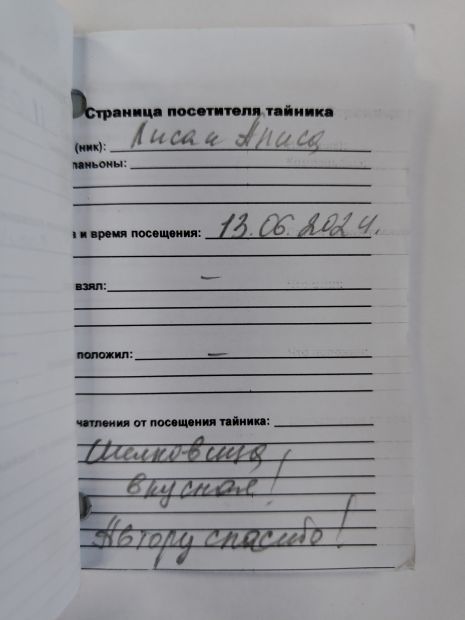 Страница посетителя тайника
(ник): Лиса и Алиса
паньоны:
а и время посещения: 13.06.2024.
взял: –
положил: –
чатления от посещения тайника:
Шелковица
вкусная!
Автору спасибо!